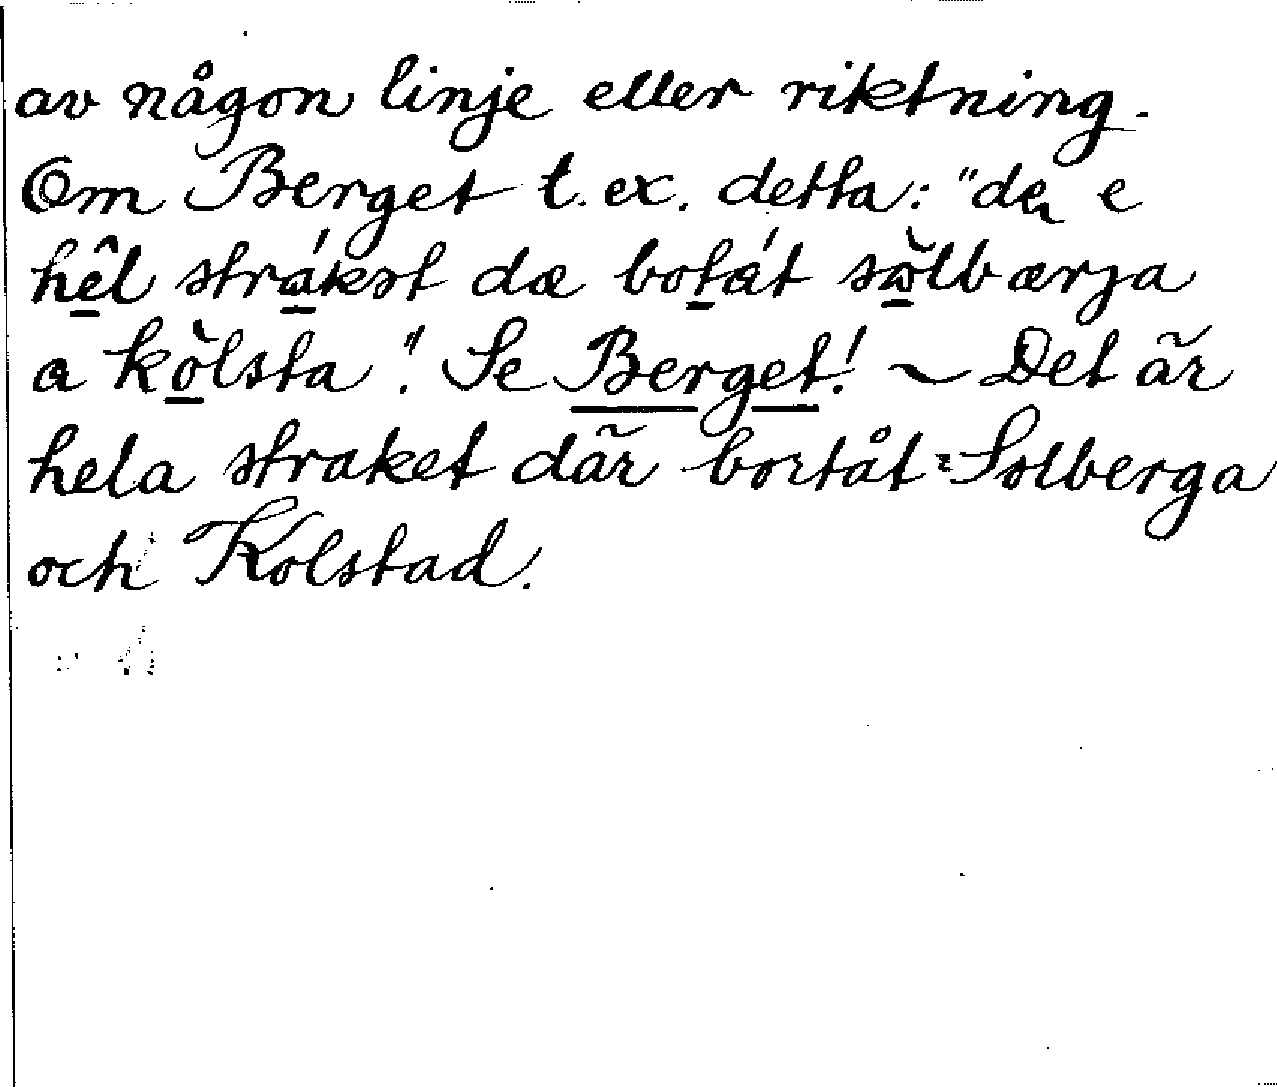 av någon linje eller riktning.
Om Berget t. ex. detta: "de e
hêl strákst dæ botát sòlbærja
a kòlsta". Se Berget! ~ Det är
hela straket där bortåt Solberga
och Kolstad.